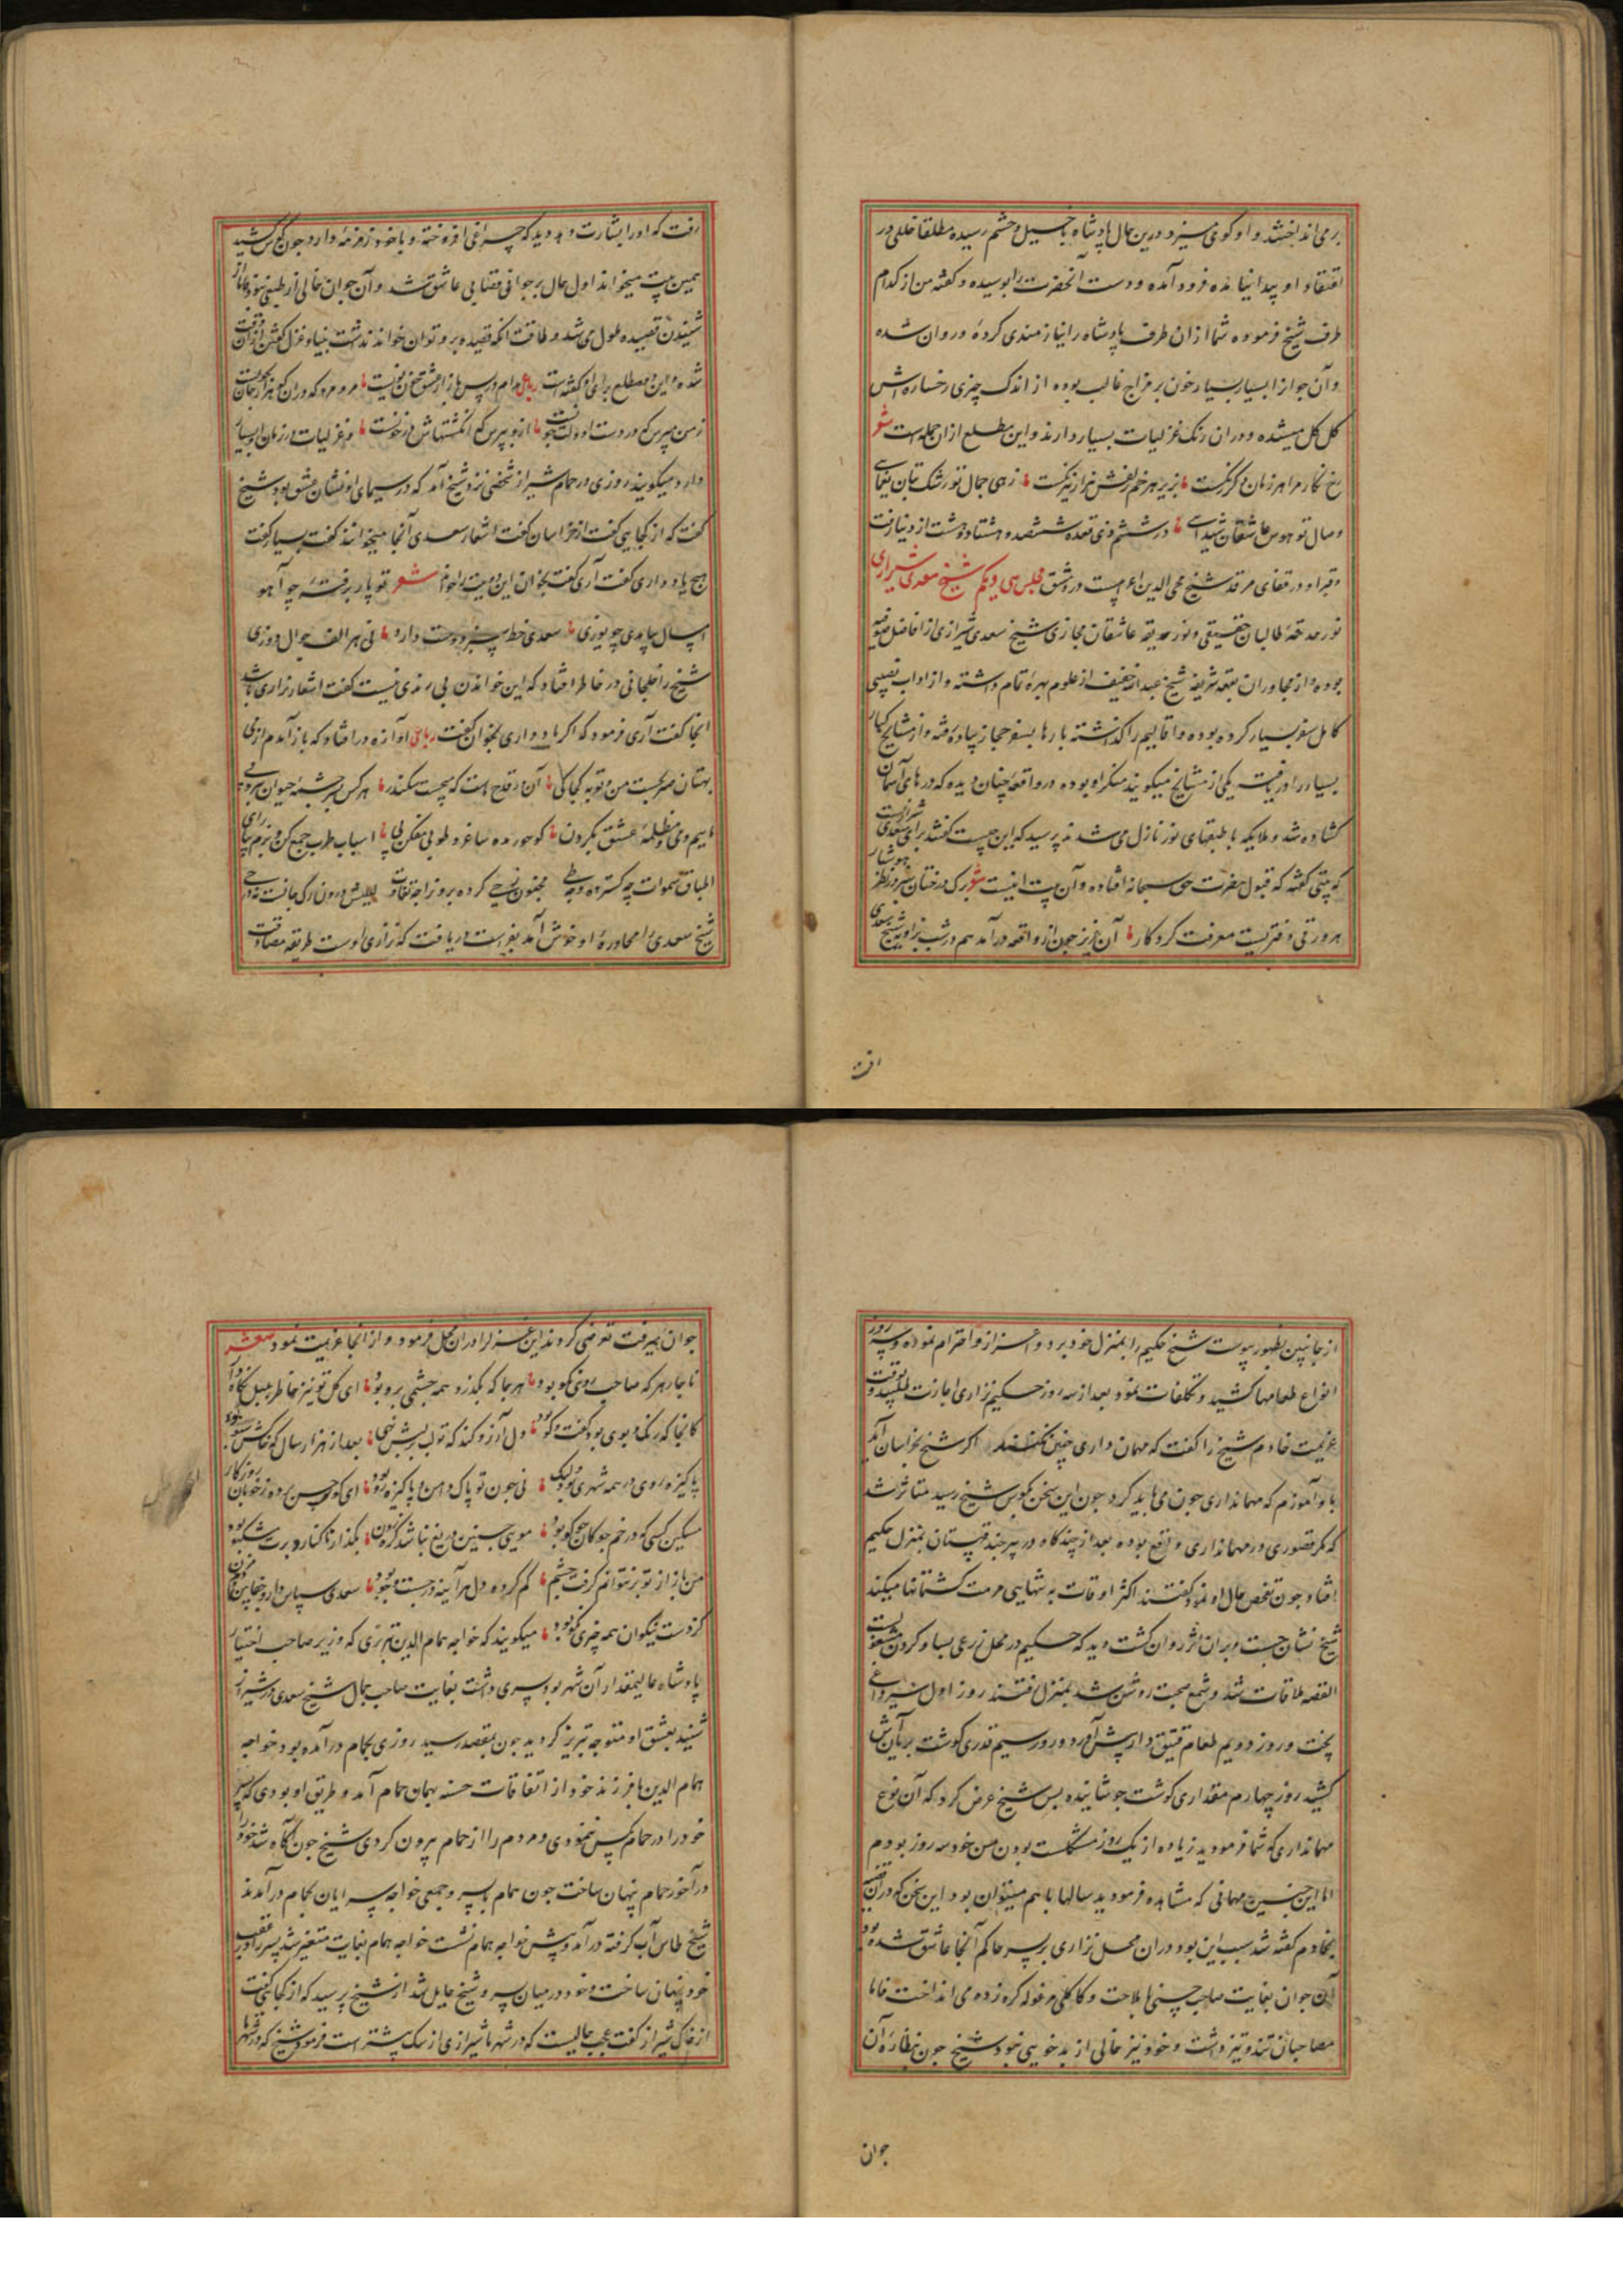 برمی‌انداخته و او کوی میزد درین حال پادشاه با خیل و حشم رسیده مطلقا خللی در
اعتقاد او پیدا نیامده فرود آمده و دست آنحضرت را بوسیده و کفته من از کدام
طرف شیخ فرموده شما ازان طرف پادشاه را نیازمندی کرده و روان شده
و آن جوانرا بسیار بسیار خون بر مزاج غالب بوده از اندک چیزی رخساره اش
کل کل میشده و دران رنک غزلیات بسیار دارند و این مطلع ازان جمله است شعر
رخ نکار مرا هر زمان دکر رنکست بزیر هر خم زلفش هزار نیرنکست زهی جمال تو رشک بتان یغمایی
وصال تو هوس عاشقان شیدایی در ششم ذی قعده ششصد و هشتاد و هشت از دنیا رفت
و قبر او در قفای مرقد شیخ محی الدین اعرابیست در دمشق مجلس سی و یکم شیخ سعدی شیرازی
نور حدقهٔ طالبان حقیقی و نور حدیقه عاشقان مجازی شیخ سعدی شیرازی از افاضل صوفیه
بوده و از مجاوران بقعه شریفه شیخ عبدالله خفیف از علوم بهرهٔ تمام داشته و از اداب نصیبی
کامل سفر بسیار کرده بوده و اقالیم را کذشته بارها بسفر حجاز پیاده رفته و از مشایخ کبار
بسیار را دریافت یکی از مشایخ میکویند منکر او بوده در واقعه چنان دیده که درهای آسمان
کشاده شد و ملایکه با طبقهای نور نازل می شدند پرسید که این چیست کفتند برای سعدی شیرازیست
که بیتی کفته که قبول حضرت حق سبحانه افتاده و آن بیت اینست شعر برک درختان سبز در نظر هوشیار
هر ورقی دفتریست معرفت کردکار آن عزیز چون از واقعه درآمد هم در شب بزاویه شیخ سعدی
رفت که او را بشارت دهد دید که چراغی افروخته و با خود زمزمهٔ دارد چون کوش کشید
همین بیت میخواند اول حال بر جوانی قصابی عاشق شد و آن جوان خالی از طبعی نبود اما از
شنیدن قصیده ملول می شد و طاقت آنکه قصیده برو توان خواند نداشت بنیاد غزل کفتن ازان وقت
شده و این دو مطلع برای او کفته است
ز من مپرس که در دست او دلت چونست ازو بپرس که انکشتهاش در خونست و غزلیات در زمان او بسیار
دارد میکویند روزی در حمام شیراز شخصی نزد شیخ آمد که در سیمای او نشان عشق بود شیخ
کفت که از کجایی کفت از خراسان کفت اشعار سعدی آنجا میخوانند کفت بسیار کفت
هیچ یاد داری کفت آری کفت بخوان این دو بیت را خواند شعر تو پار برفتهٔ چو آهو
امسال بیامدی چو یوزی سعدی خط سبز دوست دارد نی هر الف جوال دوزی
شیخ را خلجانی در خاطر افتاد که این خواندن بی رمزی نیست کفت اشعار نزاری باشد
آنجا کفت آری فرمود که اکر یاد داری بخوان کفت رباعی آوازه در افتاد که باز آمدم از می
بهتان صریحست من و توبه کجا کی آن در قدح است که میجست سکندر هر کس بسر چشمه حیوان نبرد پی
ماییم و می و مظلمهٔ عشق بکردن کو حور مده ساغر و طوبی مفکن پی اسباب طرب جمع کن و بزم بیارای
اطباق سموات چه کسترده و چه طی مجنون رخی کرده برو تا چه تفاوت لیلیش درون رک جانست نه در حی
شیخ سعدی را محاورهٔ او خوش آمد بفراست دریافت که نزاری اوست طریقه مصادقت
از جانبین بظهور پیوست شیخ حکیم را بمنزل خود برد و اعزاز و احترام نموده و سه روز
انواع طعامها کشید و تکلفات نمود بعد از سه روز حکیم نزاری اجازت طلبید و بوقت
عزیمت خادم شیخ را کفت که مهمان داری چنین نکنند اکر شیخ بخراسان آید
با و آموزم که مهمانداری چون می باید کرد چون این سخن بکوش شیخ رسید متاثر شد
که مکر قصوری در مهمانداری واقع بوده بعد از چندکاه در بیرجند قهستان بمنزل حکیم
افتاد چون تفحص حال او نمود کفتند اکثر اوقات به تنهایی مرمت کشتمانها میکند
شیخ نشان جست و بران اثر روان کشت دید که حکیم در محل زرعی بیساو کردن مشغولست
القصه ملاقات شد و شمع صحبت روشن شد بمنزل رفتند روز اول شیرواجی
پخت و روز دویم طعام قتیق دار پیش آورد و روز سیم قدری کوشت بریان پیش
کشید روز چهارم مقداری کوشت جوشانیده پس شیخ عرض کرد که آن نوع
مهمانداری که شما فرمودید زیاده از یک روز مشکلست بودن من خود سه روز بودم
اما این چنین مهمانی که مشاهده فرمودید سالها با هم میتوان بود این سخن که دران قضیه
بخادم کفته شد سبب این بود دران محل نزاری بر پسر حاکم آنجا عاشق شده بود
آن جوان بغایت صاحب حسنی با ملاحت و کاکلی مرغوله کره زده می انداخت فاما
مصاحبان تند و تیز داشت و خود نیز خالی از بدخویی نبود شیخ چون بنظارهٔ آن
جوان
جوان میرفت تعرضی کردند این غزل را دران محل فرمود و از آنجا عزیمت نمود شعر
ناچار هر که صاحب روی نکو بود هر جا که بکذرد همه چشمی برو بود ای کل تو نیز خاطر بلبل نکاه دار
کانجا که رنک و بوی بود کفت و کو بود دل آرزو کند که تو لب بر لبش نهی بعد از هزار سال که خاکش سبو بود
پاکیزه روی در همه شهری بود ولیک نی چون تو پاک دامن و پاکیزه رو بود ای کوی حسن برده ز خوبان روزکار
مسکین کسی که در خم چوکان چو کو بود مویی چنین دریغ نباشد کره زدن بکذار تا کنار و برت مشکبو بود
من باز از تو برنتوانم کرفت چشم کم کرده دل هر آینه در جست و جو بود سعدی سپاس دار و جفا بین و دم مزن
کز دست نیکوان همه چیزی نکو بود میکویند که خواجه همام الدین تبریزی که وزیر صاحب اختیار
پادشاه عالیمقدار آن شهر بود پسری داشت بغایت صاحب جمال شیخ سعدی در شیراز
شنید بعشق او متوجه تبریز کردید چون بمقصد رسید روزی بحمام درآمده بود خواجه
همام الدین با فرزند خود از اتفاقات حسنه بهمان حمام آمد و طریق او بودی که پسر
خود را در حمام بکس ننمودی و مردم را از حمام بیرون کردی شیخ چون آکاه شد خود را
در آخور حمام پنهان ساخت چون همام با پسر و جمعی خواجه سرایان بحمام درآمدند
شیخ طاس آب کرفته درآمد و پیش خواجه همام نشست خواجه همام بغایت متغیر شد پسر را در عقب
خود پنهان ساخت و خود در میان پسر و شیخ حایل شد از شیخ پرسید که از کجایی کفت
از خاک شیراز کفت عجب حالیست که در شهر ما شیرازی از سک بیشتر است فرمود شیخ که در شهر ما